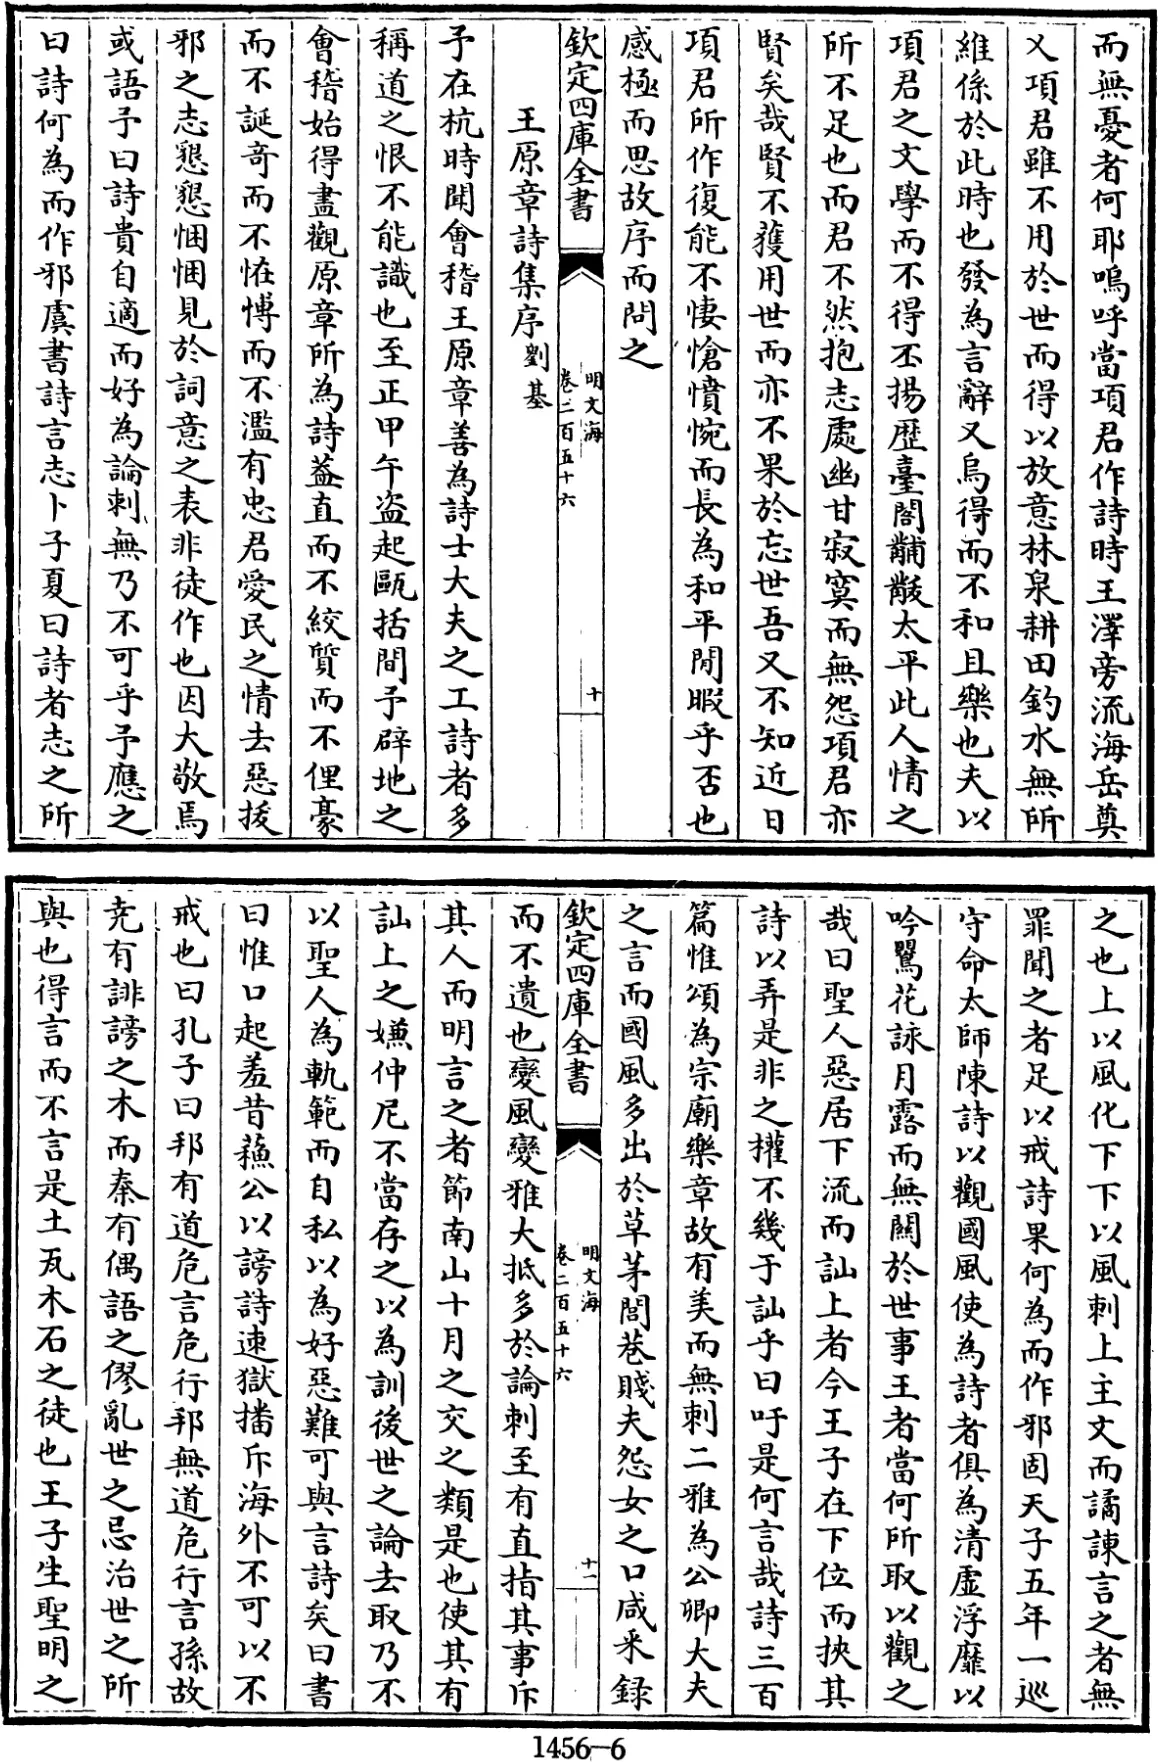 而無憂者何耶嗚呼當項君作詩時王澤旁流海岳奠
乂項君雖不用於世而得以放意林泉耕田釣水無所
維係於此時也發為言辭又烏得而不和且樂也夫以
項君之文學而不得丕揚歷臺閣黼黻太平此人情之
所不足也而君不然抱志處幽甘寂寞而無怨項君亦
賢矣哉賢不獲用世而亦不果於忘世吾又不知近日
項君所作復能不悽愴憤惋而長為和平閒暇乎否也
感極而思故序而問之
欽定四庫全書
明文海
卷二百五十六
十
王原章詩集序劉基
予在杭時聞會稽王原章善為詩士大夫之工詩者多
稱道之恨不能識也至正甲午盗起甌括間予辟地之
會稽始得盡觀原章所為詩蓋直而不絞質而不俚豪
而不誕奇而不恠博而不濫有忠君愛民之情去惡拔
邪之志懇懇悃悃見於詞意之表非徒作也因大敬焉
或語予曰詩貴自適而好為論刺無乃不可乎予應之
曰詩何為而作邪虞書詩言志卜子夏曰詩者志之所
之也上以風化下下以風刺上主文而譎諫言之者無
罪聞之者足以戒詩果何為而作邪固天子五年一巡
守命太師陳詩以觀國風使為詩者俱為清虛浮靡以
吟鶯花詠月露而無關於世事王者當何所取以觀之
哉曰聖人惡居下流而訕上者今王子在下位而挾其
詩以弄是非之權不幾于訕乎曰吁是何言哉詩三百
篇惟頌為宗廟樂章故有美而無刺二雅為公卿大夫
之言而國風多出於草茅閭巷賤夫怨女之口咸采錄
欽定四庫全書
明文海
卷二百五十六
十一
而不遺也變風變雅大抵多於論刺至有直指其事斥
其人而明言之者節南山十月之交之類是也使其有
訕上之嫌仲尼不當存之以為訓後世之論去取乃不
以聖人為軌範而自私以為好惡難可與言詩矣曰書
曰惟口起羞昔蘓公以謗詩速獄播斥海外不可以不
戒也曰孔子曰邦有道危言危行邦無道危行言孫故
堯有誹謗之木而秦有偶語之僇亂世之忌治世之所
與也得言而不言是土瓦木石之徒也王子生聖明之
1456-6